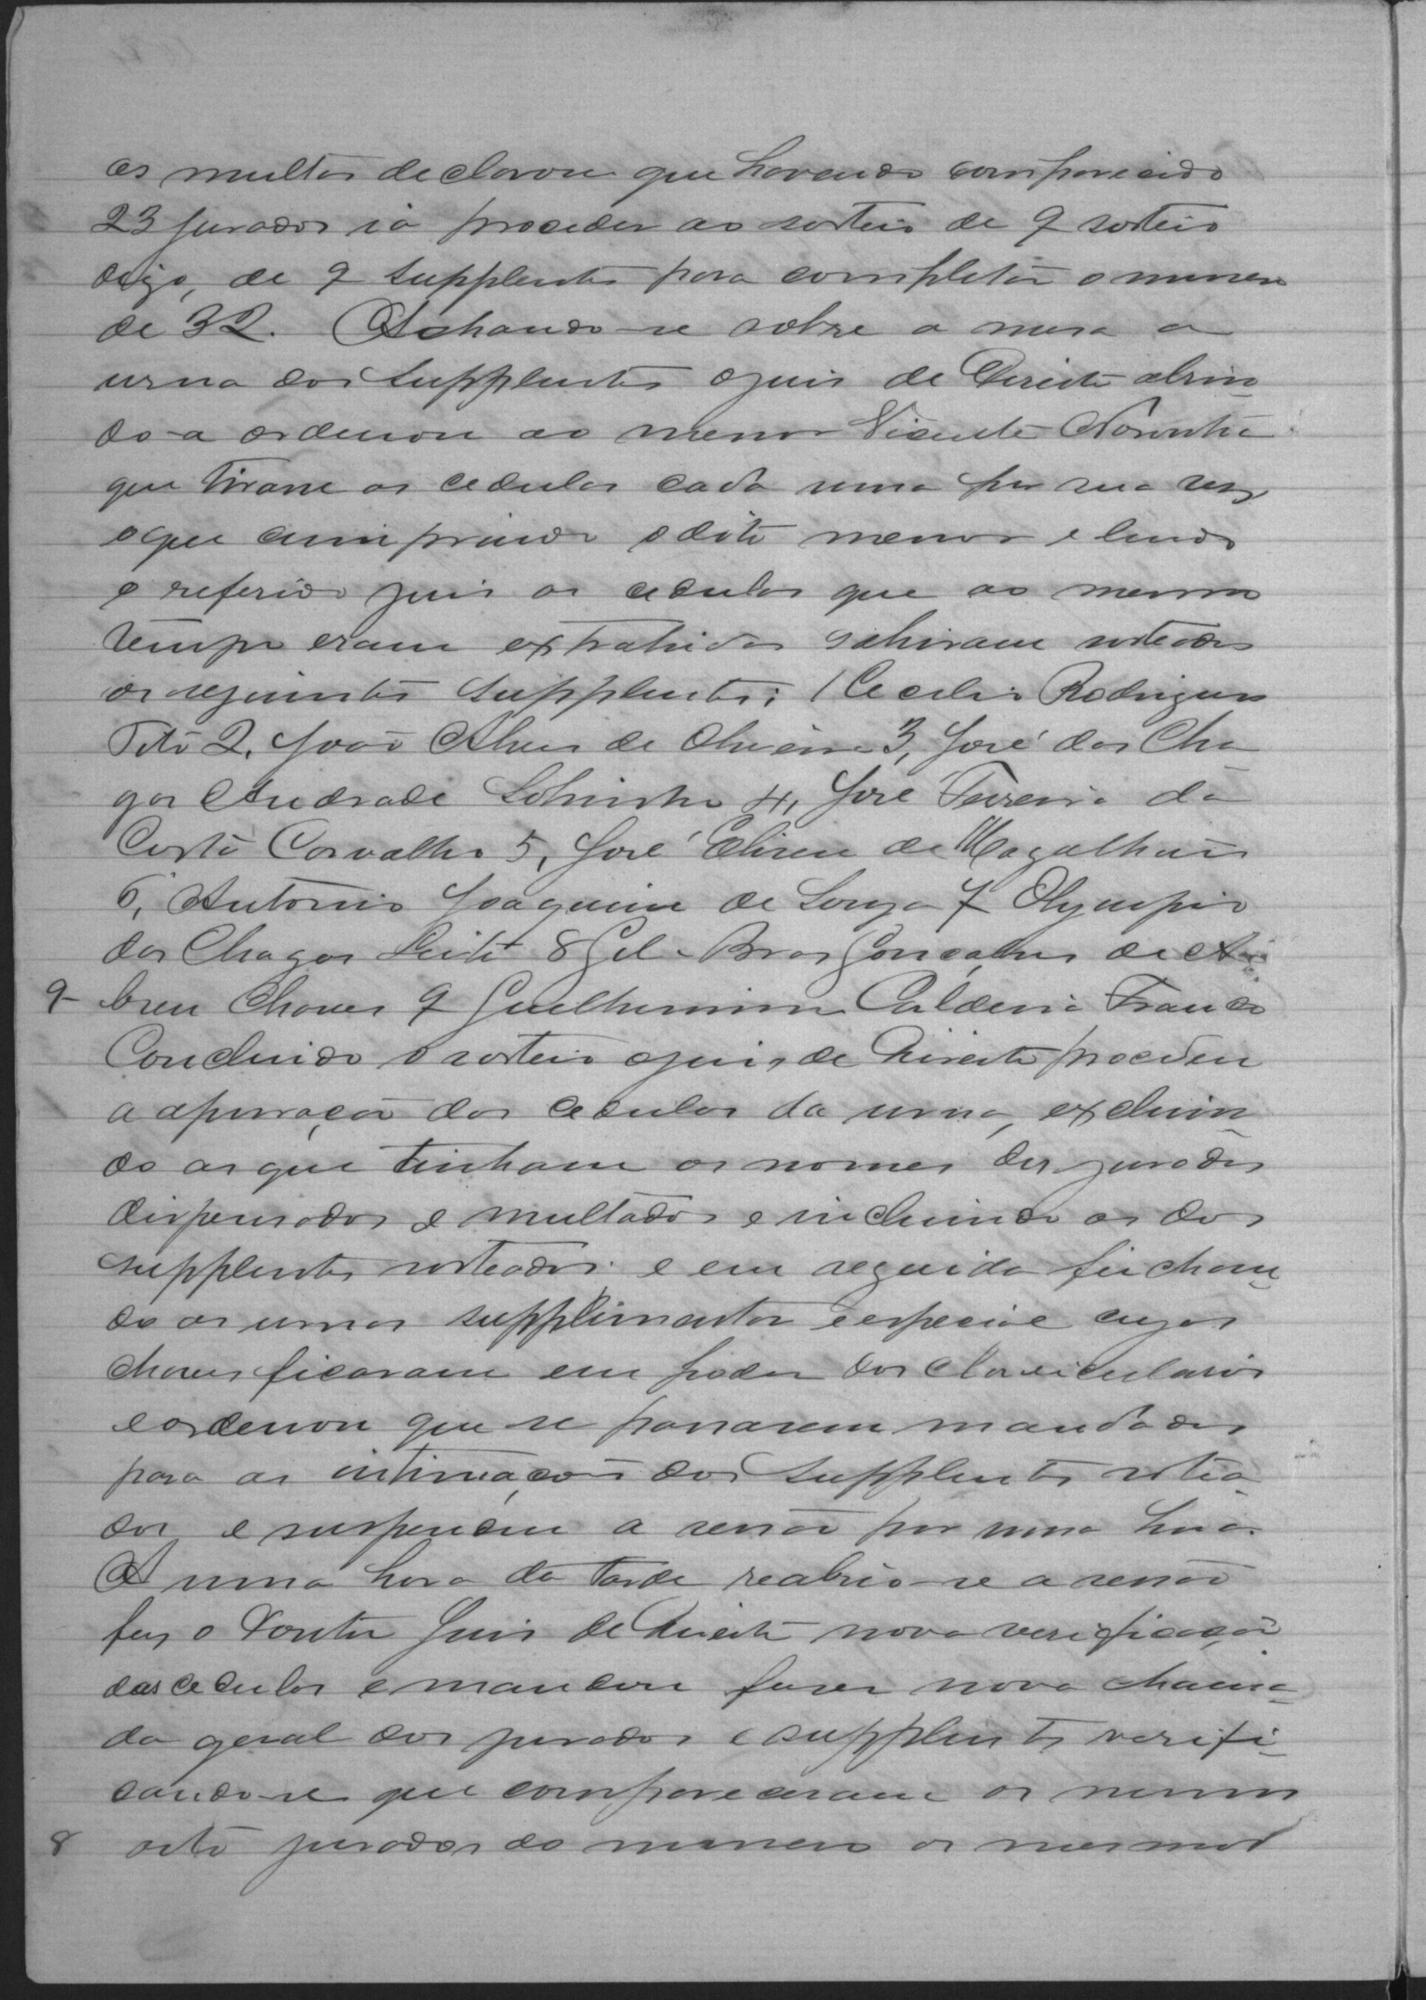 as multas declarou que havendo comparecido
23 jurados ia proceder ao sorteio de 9 sorteio
digo, de 9 supplentes para completar o numero
de 32. Achando-se sobre a mesa a
urna dos supplentes o juis de Direito abrin-
do-a ordenou ao menor Vicente Noronha
que tirasse as cedulas cada uma por sua vez
o que cumprindo o dito menor e lendo
o referido juis as cedulas que ao mesmo
tempo eram extrahidas sahiram sorteados
os seguintes supplentes: 1 Cecilio Rodrigues
Tito 2, João Alves de Oliveira 3, José das Cha-
gas Andrade Sobrinho 4, José Ferreira da
Costa Carvalho 5, José Eliseu de Magalhães
6, Antonio Joaquim de Souza 7 Olympio
das Chagas Leite 8 Gil Bras Gonçalves de A-
9- breu Chaves 9 Guilhermino Caldeira Franco
Concluido o sorteio o juis de Direito procedeu
a apuração das cedulas da urna, excluin-
do as que tinham os nomes dos jurados
dispensados e multados e incluindo as dos
supplentes sorteados e em seguida fechan-
do as urnas supplimentar e especial cujas
chaves ficaram em poder dos clavicularios
e ordenou que se passassem mandados
para as intimações dos supplentes sortea-
dos, e suspendeu a sessão por uma hora.
A uma hora da tarde reabrio-se a sessão
fez o Doutor Juis de Direito nova verificação
das cedulas e mandou faser nova chama-
da geral dos jurados e supplentes verifi-
cando-se que compareceram os mesmos
8 oito jurados do numero os mesmos